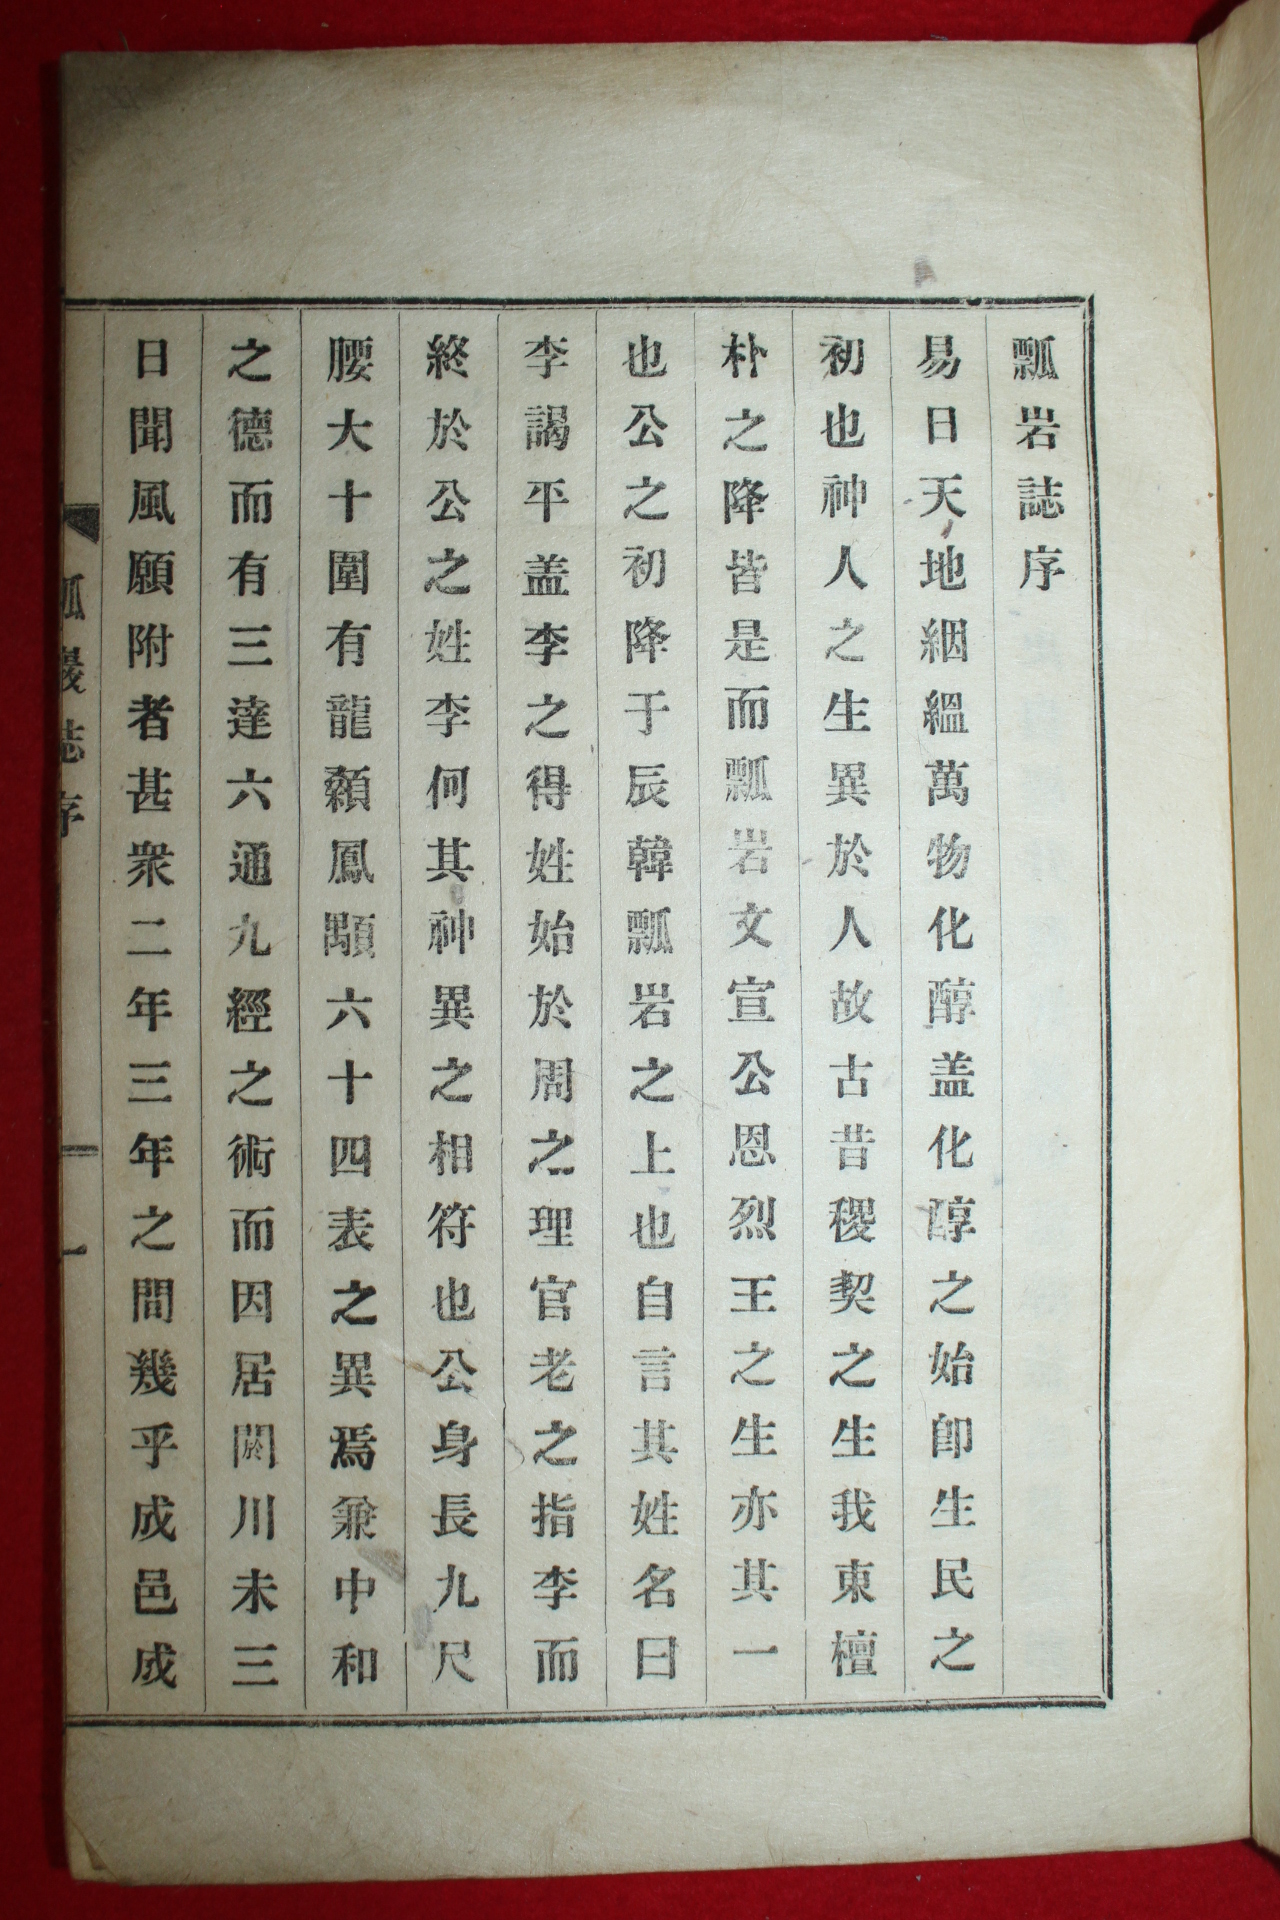 瓢岩誌序
易曰天地絪縕萬物化醇盖化醇之始卽生民之
初也神人之生異於人故古昔稷契之生我東檀
朴之降皆是而瓢岩文宣公恩烈王之生亦其一
也公之初降于辰韓瓢岩之上也自言其姓名曰
李謁平盖李之得姓始於周之理官老之指李而
終於公之姓李何其神異之相符也公身長九尺
腰大十圍有龍顙鳳顒六十四表之異焉兼中和
之德而有三達六通九經之術而因居閼川未三
日聞風願附者甚衆二年三年之間幾乎成邑成
瓢巖誌序
一